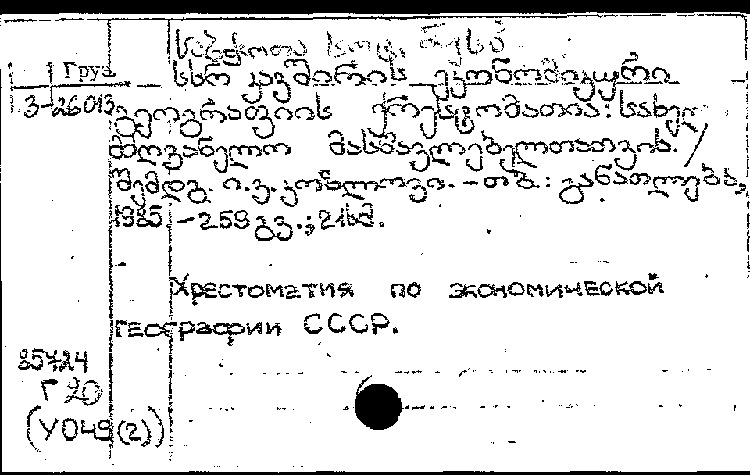 საბჭოთა სოც. რესპ
Груз
სსრ კავშირის ეკონომიკური
3-26013
გეოგრაფიის ქრესტომათია: სახელ
მძღვანელო მასწავლებელთათვის. /
შემდგ. ი.ვ. კომლოვი. – თბ.: განათლება,
1985. – 259 გვ.; 21სმ.
Хрестоматия по экономической
географии СССР.
85724
Г 20
(У049(2))